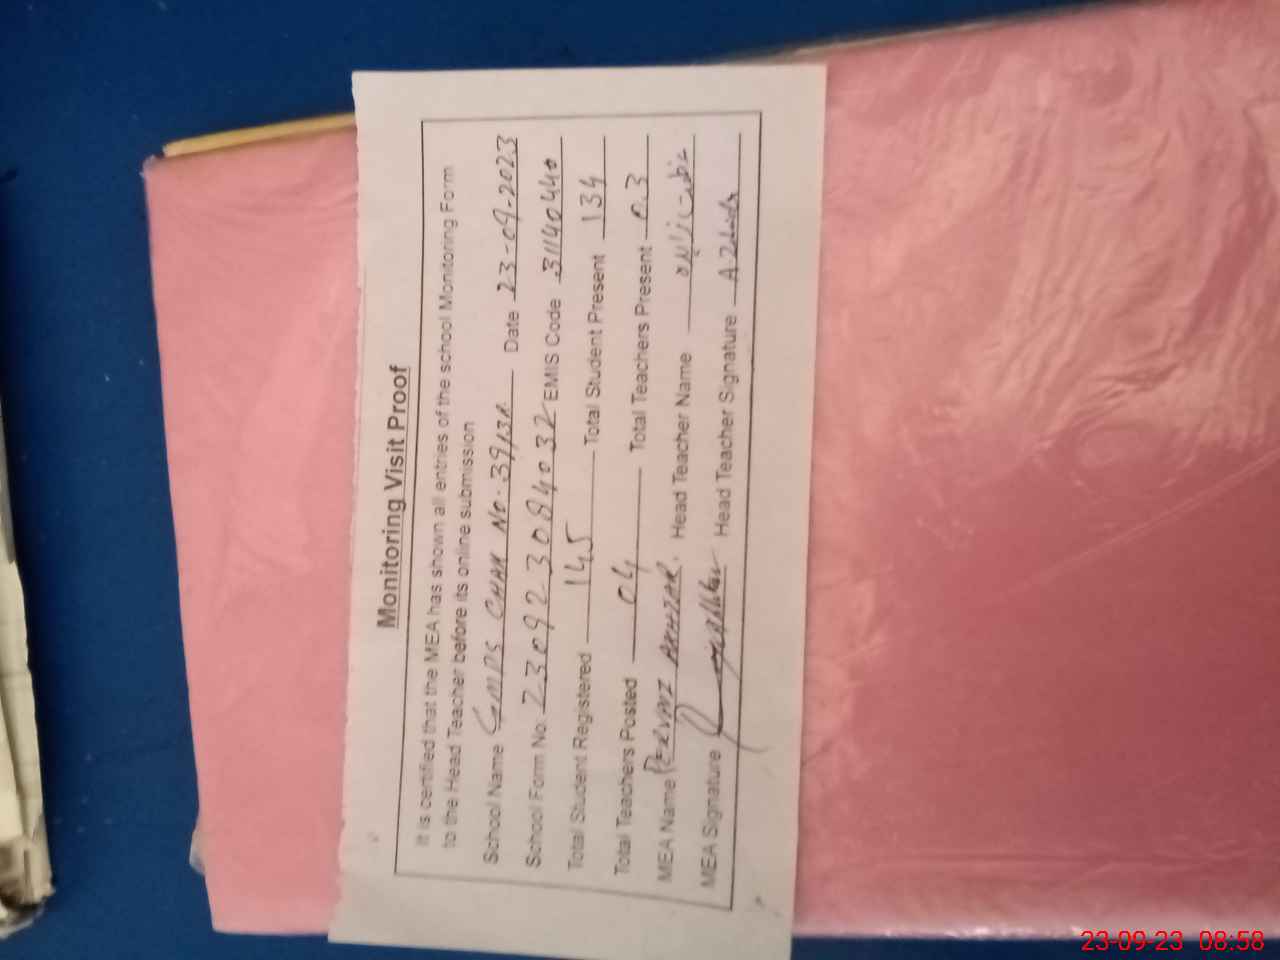 Monitoring Visit Proof
It is certified that the MEA has shown all entries of the school Monitoring Form
to the Head Teacher before its online submission
School Name GMPS CHAK No. 39/3R Date 23-09-2023
School Form No. 230923084032 EMIS Code 31140440
Total Student Registered 145 Total Student Present 134
Total Teachers Posted 04 Total Teachers Present 03
MEA Name PERVAIZ AKHTAR. Head Teacher Name
MEA Signature Head Teacher Signature
23-09-23 08:58